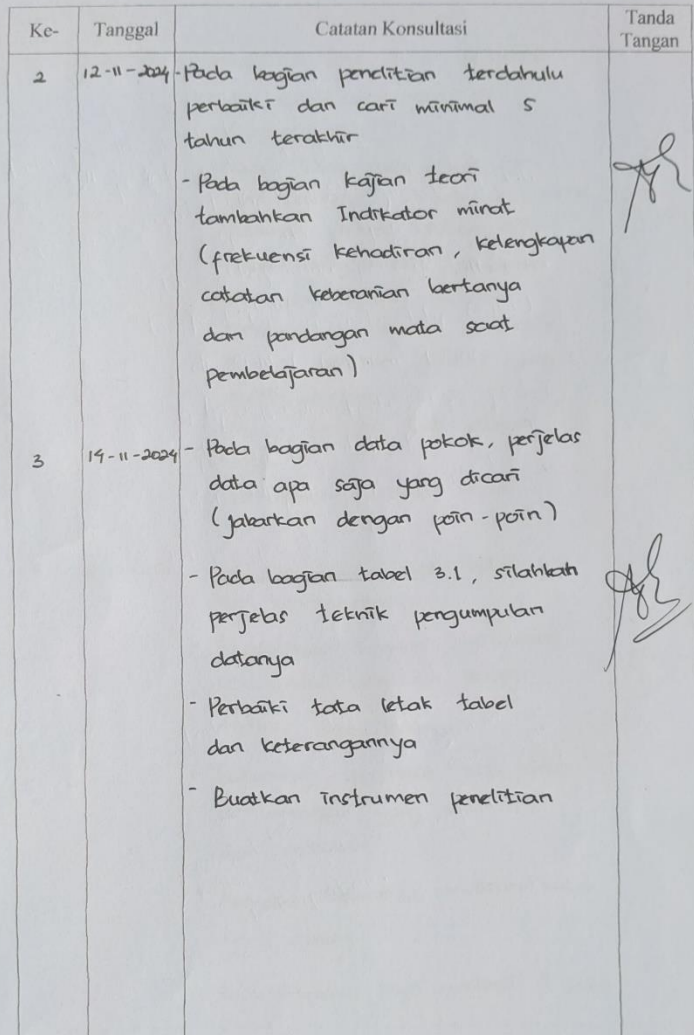 Ke- Tanggal Catatan Konsultasi Tanda Tangan
2 12-11-2024 - Pada bagian penelitian terdahulu
perbaiki dan cari minimal 5
tahun terakhir
- Pada bagian kajian teori
tambahkan Indikator minat
(frekuensi kehadiran, kelengkapan
catatan keberanian bertanya
dan pandangan mata saat
pembelajaran)
3 14-11-2024 - Pada bagian data pokok, perjelas
data apa saja yang dicari
(jabarkan dengan poin-poin)
- Pada bagian tabel 3.1, silahkah
perjelas teknik pengumpulan
datanya
- Perbaiki tata letak tabel
dan keterangannya
- Buatkan instrumen penelitian